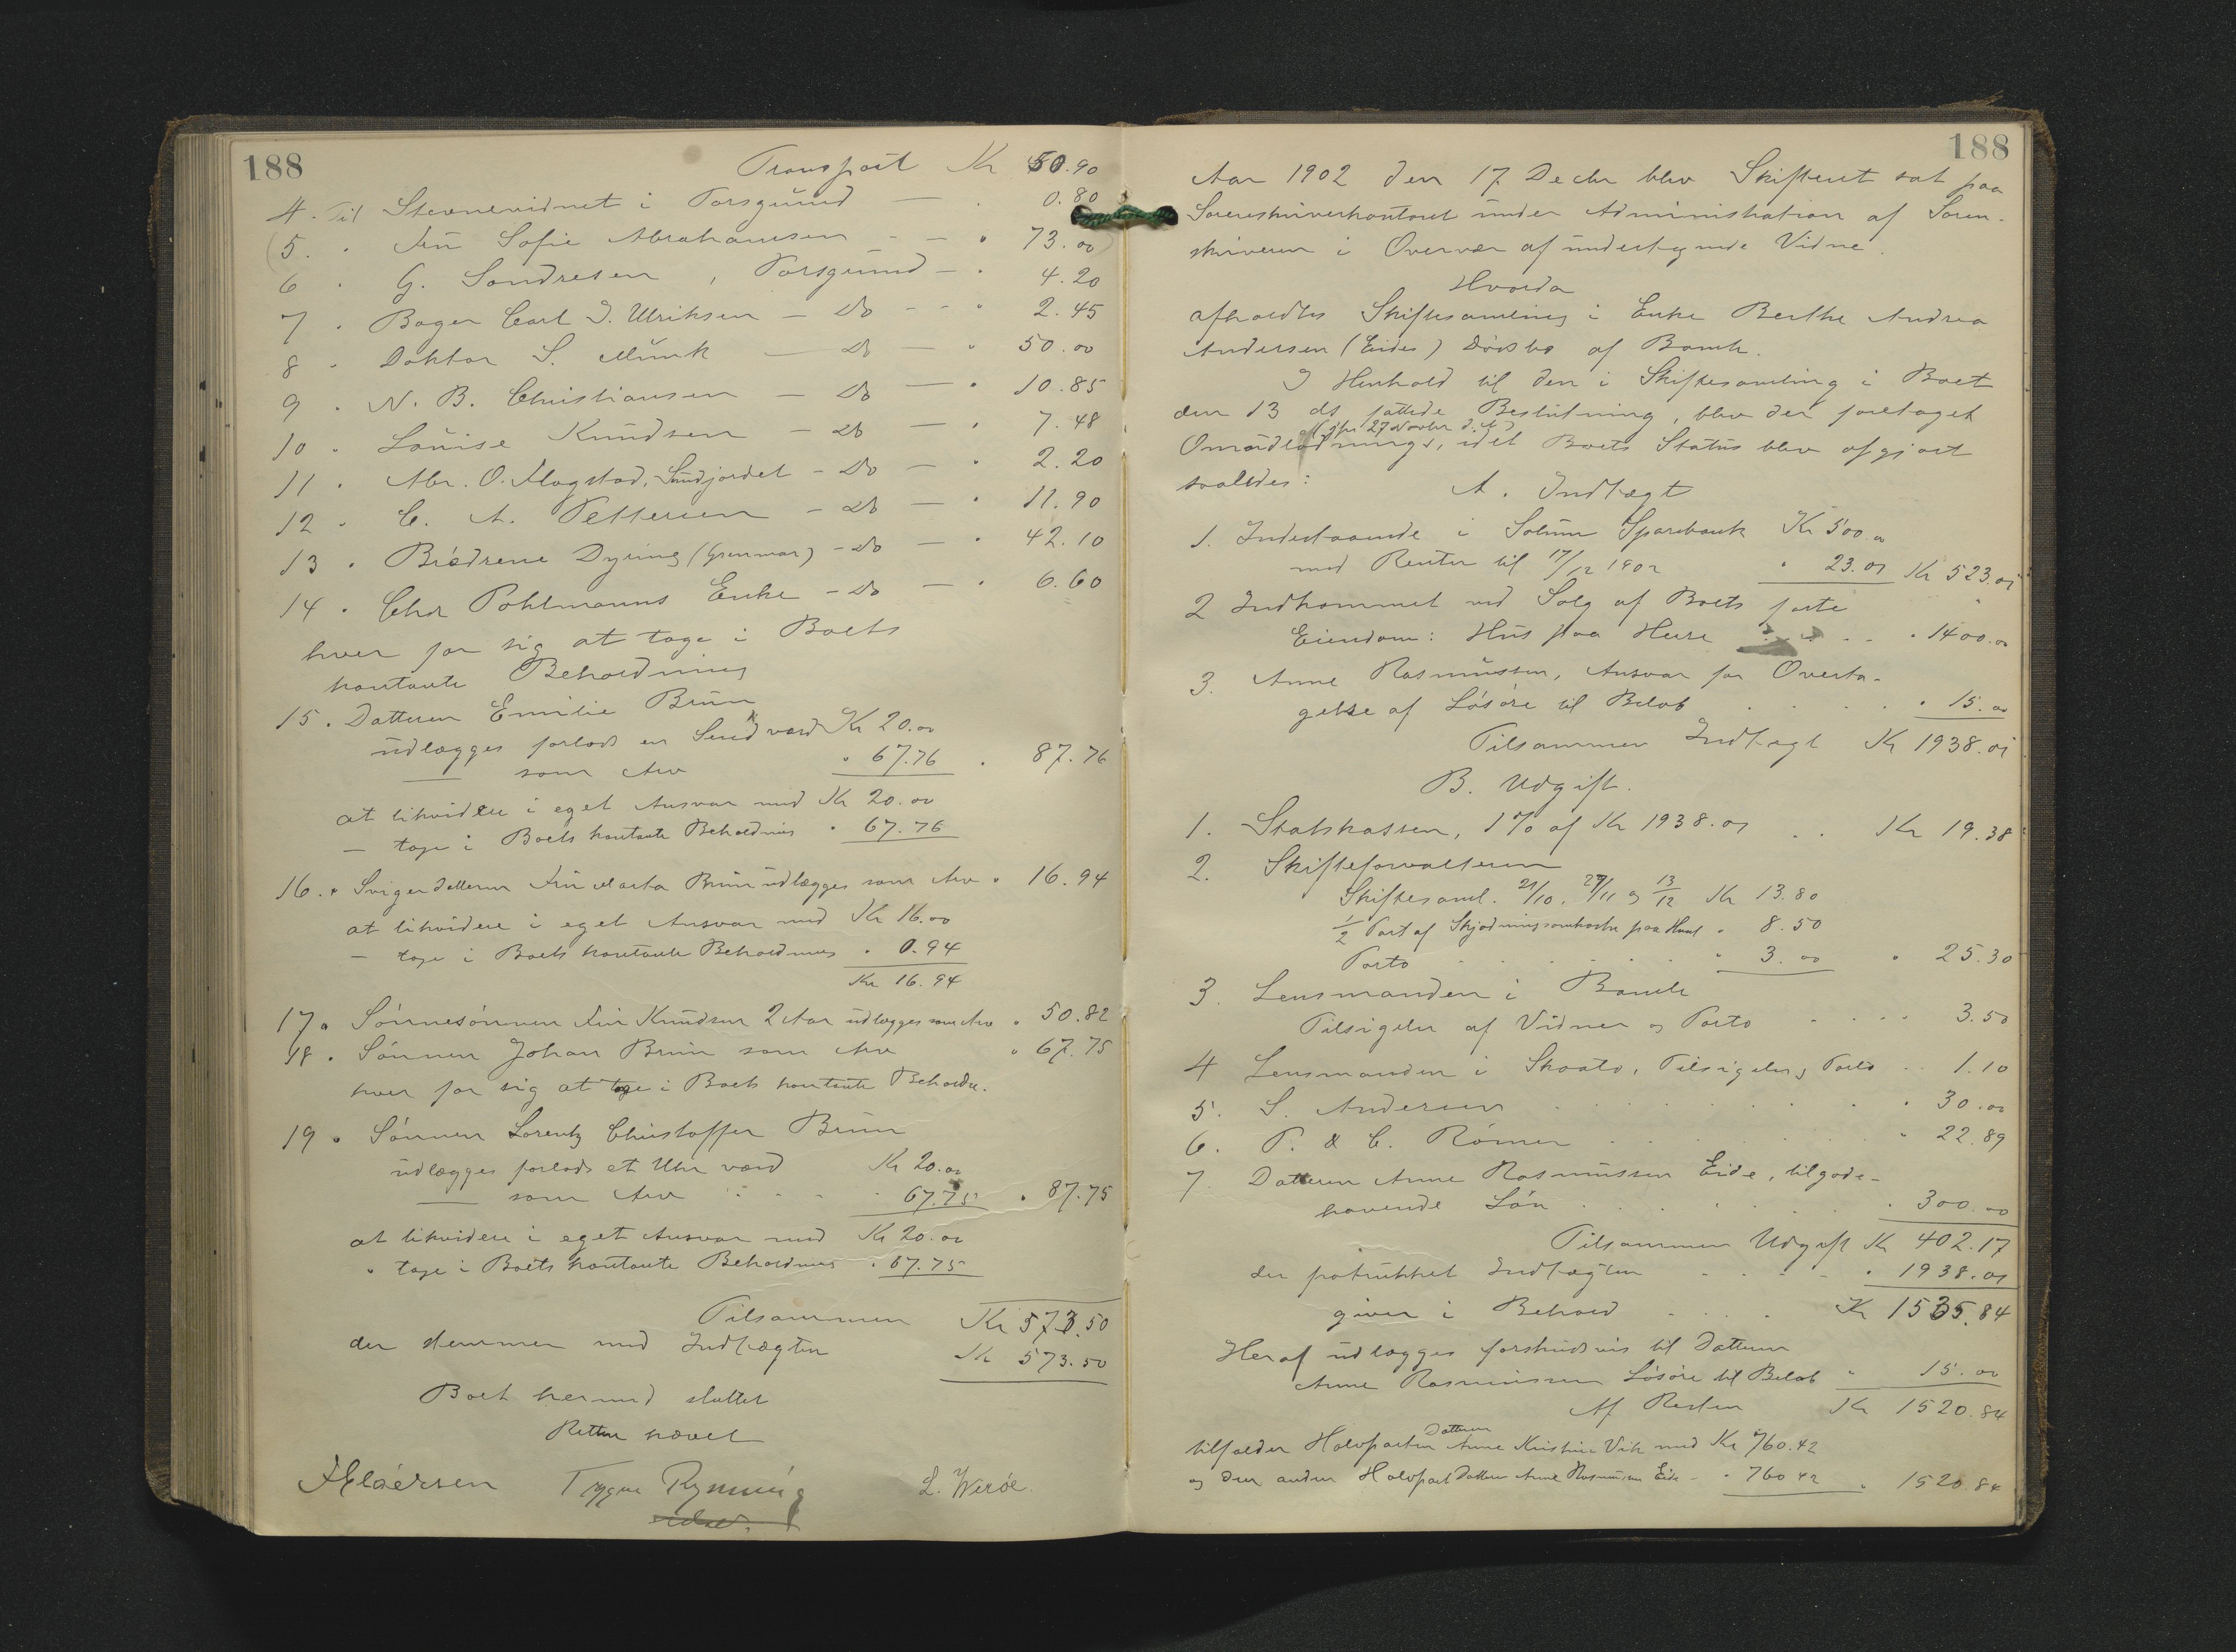 188
Transport Kr 50.90
4. Til Stevnevidnet i Porsgrund — . 0.80
(5. " Fru Sofie Abrahamsen - — " 73.00)
6 " G. Sondresen, Porsgrund - " 4.20
7 " Bager Carl J. Ulriksen - Do - - " 2.45
8 " Doktor S. Munk — Do — " 50.00
9 " N. B. Christiansen - Do — " 10.85
10 " Louise Knudsen - Do — " 7.48
11 " Abr. O. Flogstad, Sundjordet - Do — " 2.20
12 " C. A. Pettersen - Do — " 11.90
13 " Brødrene Dyring (Grenmar) - Do — " 42.10
14 " Chr Pohlmanns Enke - Do — " 6.60
hver for sig at tage i Boets
kontante Beholdning
15. Datteren Emilie Brun
udlægges forlods en Seng værd Kr 20.00
— som Arv " 67.76 " 87.76
at likvidere i eget Ansvar med Kr 20.00
— tage i Boets kontante Beholdning " 67.76
16. " Svigerdatteren Fru Marta Brun udlægges som Arv " 16.94
at likvidere i eget Ansvar med Kr 16.00
— tage i Boets kontante Beholdning " 0.94
Kr 16.94
17 " Sønnesønnen Finn Knudsen 2 Aar udlægges som Arv " 50.82
18 " Sønnen Johan Brun som Arv " 67.75
hver for sig at tage i Boets kontante Beholdn.
19 " Sønnen Lorentz Christoffer Brun
udlægges forlods et Uhr værd Kr 20.00
— som Arv 67.75 " 87.75
at likvidere i eget Ansvar med Kr 20.00
" tage i Boets kontante Beholdning " 67.75
Tilsammen Kr 573.50
der stemmer med Indtægten Kr 573.50
Boet hermed sluttet
Retten hævet
Trygve Rynning L. Werøe.
188
Aar 1902 den 17 Decbr blev Skifteret sat paa
Sorenskriverkontoret under Administration af Soren-
skriveren i Overvær af undertegnede Vidne.
Hvorda
afholdtes Skiftesamling i Enke Berthe Andrea
Andersen (Eides) Dødsbo af Bamle.
I Henhold til den i Skiftesamling i Boet
den 13 ds fattede Beslutning, blev der foretaget
(jfr 27 Novbr d. A.)
Omudlodning, idet Boets Status blev opgjort
saaledes:
A. Indtægt
1. Indestaaende i Solum Sparebank Kr 500.00
med Renter til 17/12 1902 " 23.01 Kr 523.01
2 Indkommet ved Salg af Boets faste
Eiendom: Hus paa Herre . . . . " 1400.00
3. Anne Rasmussen, Ansvar for Overta-
gelse af Løsøre til Beløb . . . . " 15.00
Tilsammen Indtægt Kr 1938.01
B. Udgift.
1. Statskassen, 1% af Kr 1938.01 . . Kr 19.38
2. Skifteforvalteren
Skiftesaml. 21/10, 27/11 og 13/12 Kr 13.80
1/2 Part af Skjødningsomkostn. paa Huset " 8.50
Porto . . . . . . " 3.00 " 25.30
3. Lensmanden i Bamle
Tilsigelse af Vidner og Porto . . . . 3.50
4 Lensmanden i Skaatø, Tilsigelse, Porto . . 1.10
5. S. Andersen . . . . . . " 30.00
6. P. & C. Rømer . . . . . . " 22.89
7. Datteren Anne Rasmussen Eide, tilgode-
havende Løn . . . . . . " 300.00
Tilsammen Udgift Kr 402.17
der fratrukket Indtægten . . . . " 1938.01
giver i Behold . . . . Kr 1535.84
Heraf udlægges forskudsvis til Datteren
Anne Rasmussen Løsøre til Beløb " 15.00
Af Resten Kr 1520.84
Datteren
tilfalder Halvparten Anne Kirstine Vik med Kr 760.42
og den anden Halvpart Datteren Anne Rasmussen Eide - " 760 42 " 1520.84